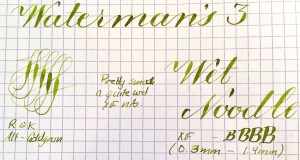 Waterman's 3
Pretty small
a quite wet
XF nib
Wet
Noodle
R & K
Alt-Goldgrün
XF - BBBB
(0.3mm - 1.9mm)